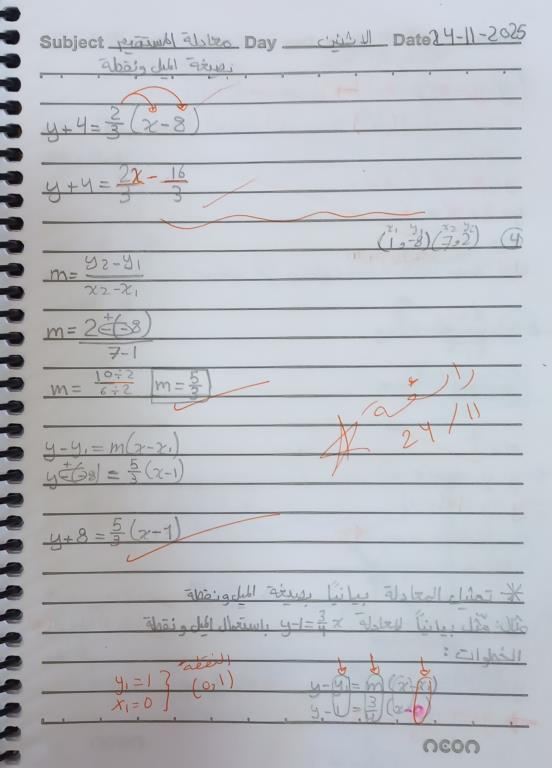 Subject معادلة المستقيم Day الاثنين Date 24-11-2025
بصيغة الميل ونقطة
y+4 = 2/3 (x-8)
y+4 = 2x/3 - 16/3
④ (7,2) (1,-8)
x₂ y₂ x₁ y₁
m = y₂-y₁ / x₂-x₁
m = 2-(-8) / 7-1
+
m = 10÷2 / 6÷2 m = 5/3
رائعة
24/11
y-y₁ = m(x-x₁)
y-(-8) = 5/3 (x-1)
+
y+8 = 5/3 (x-1)
* تمثيل المعادلة بيانياً بصيغة الميل ونقطة
مثال: مثّل بيانياً المعادلة y-1=3/4 x باستعمال الميل ونقطة
الخطوات:
y-y₁ = m (x-x₁)
y-1 = 3/4 (x-0)
النقطة
(0,1)
y₁=1
x₁=0
neon